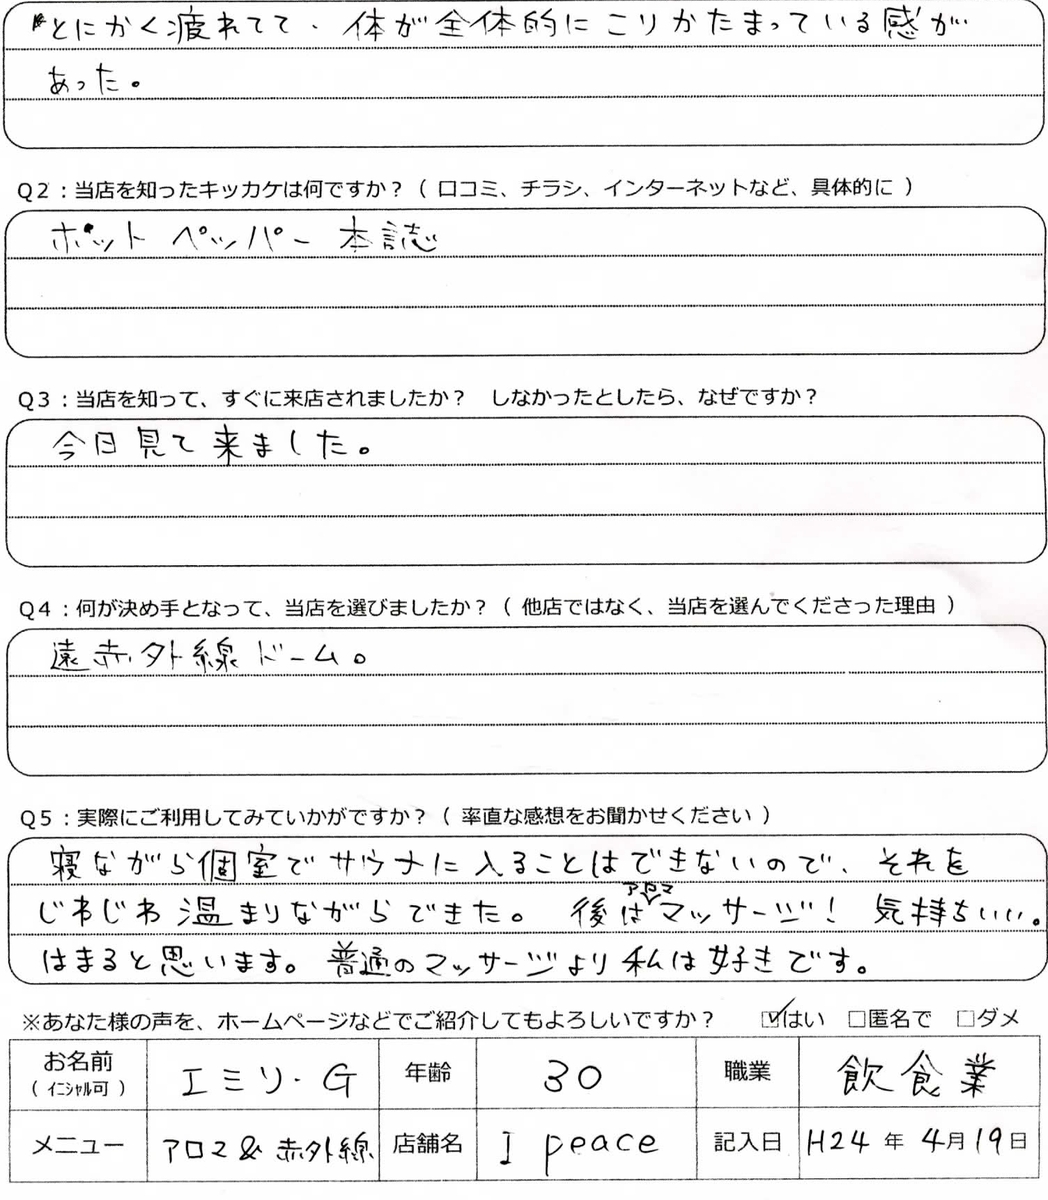 とにかく疲れてて、体が全体的にこりかたまっている感が
あった。
Q2:当店を知ったキッカケは何ですか?( 口コミ、チラシ、インターネットなど、具体的に )
ホットペッパー本誌
Q3:当店を知って、すぐに来店されましたか? しなかったとしたら、なぜですか?
今日見て来ました。
Q4:何が決め手となって、当店を選びましたか?( 他店ではなく、当店を選んでくださった理由 )
遠赤外線ドーム。
Q5:実際にご利用してみていかがですか?( 率直な感想をお聞かせください )
寝ながら個室でサウナに入ることはできないので、それを
じわじわ温まりながらできた。後はアロママッサージ! 気持ちいい。
はまると思います。普通のマッサージより私は好きです。
※あなた様の声を、ホームページなどでご紹介してもよろしいですか? ☑はい □匿名で □ダメ
お名前 エミリ・G 年齢 30 職業 飲食業
( イニシャル可 )
メニュー アロマ&赤外線 店舗名 I peace 記入日 H24年 4月19日